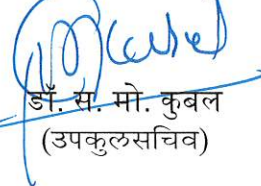 डॉ. स. मो. कुबल
(उपकुलसचिव)